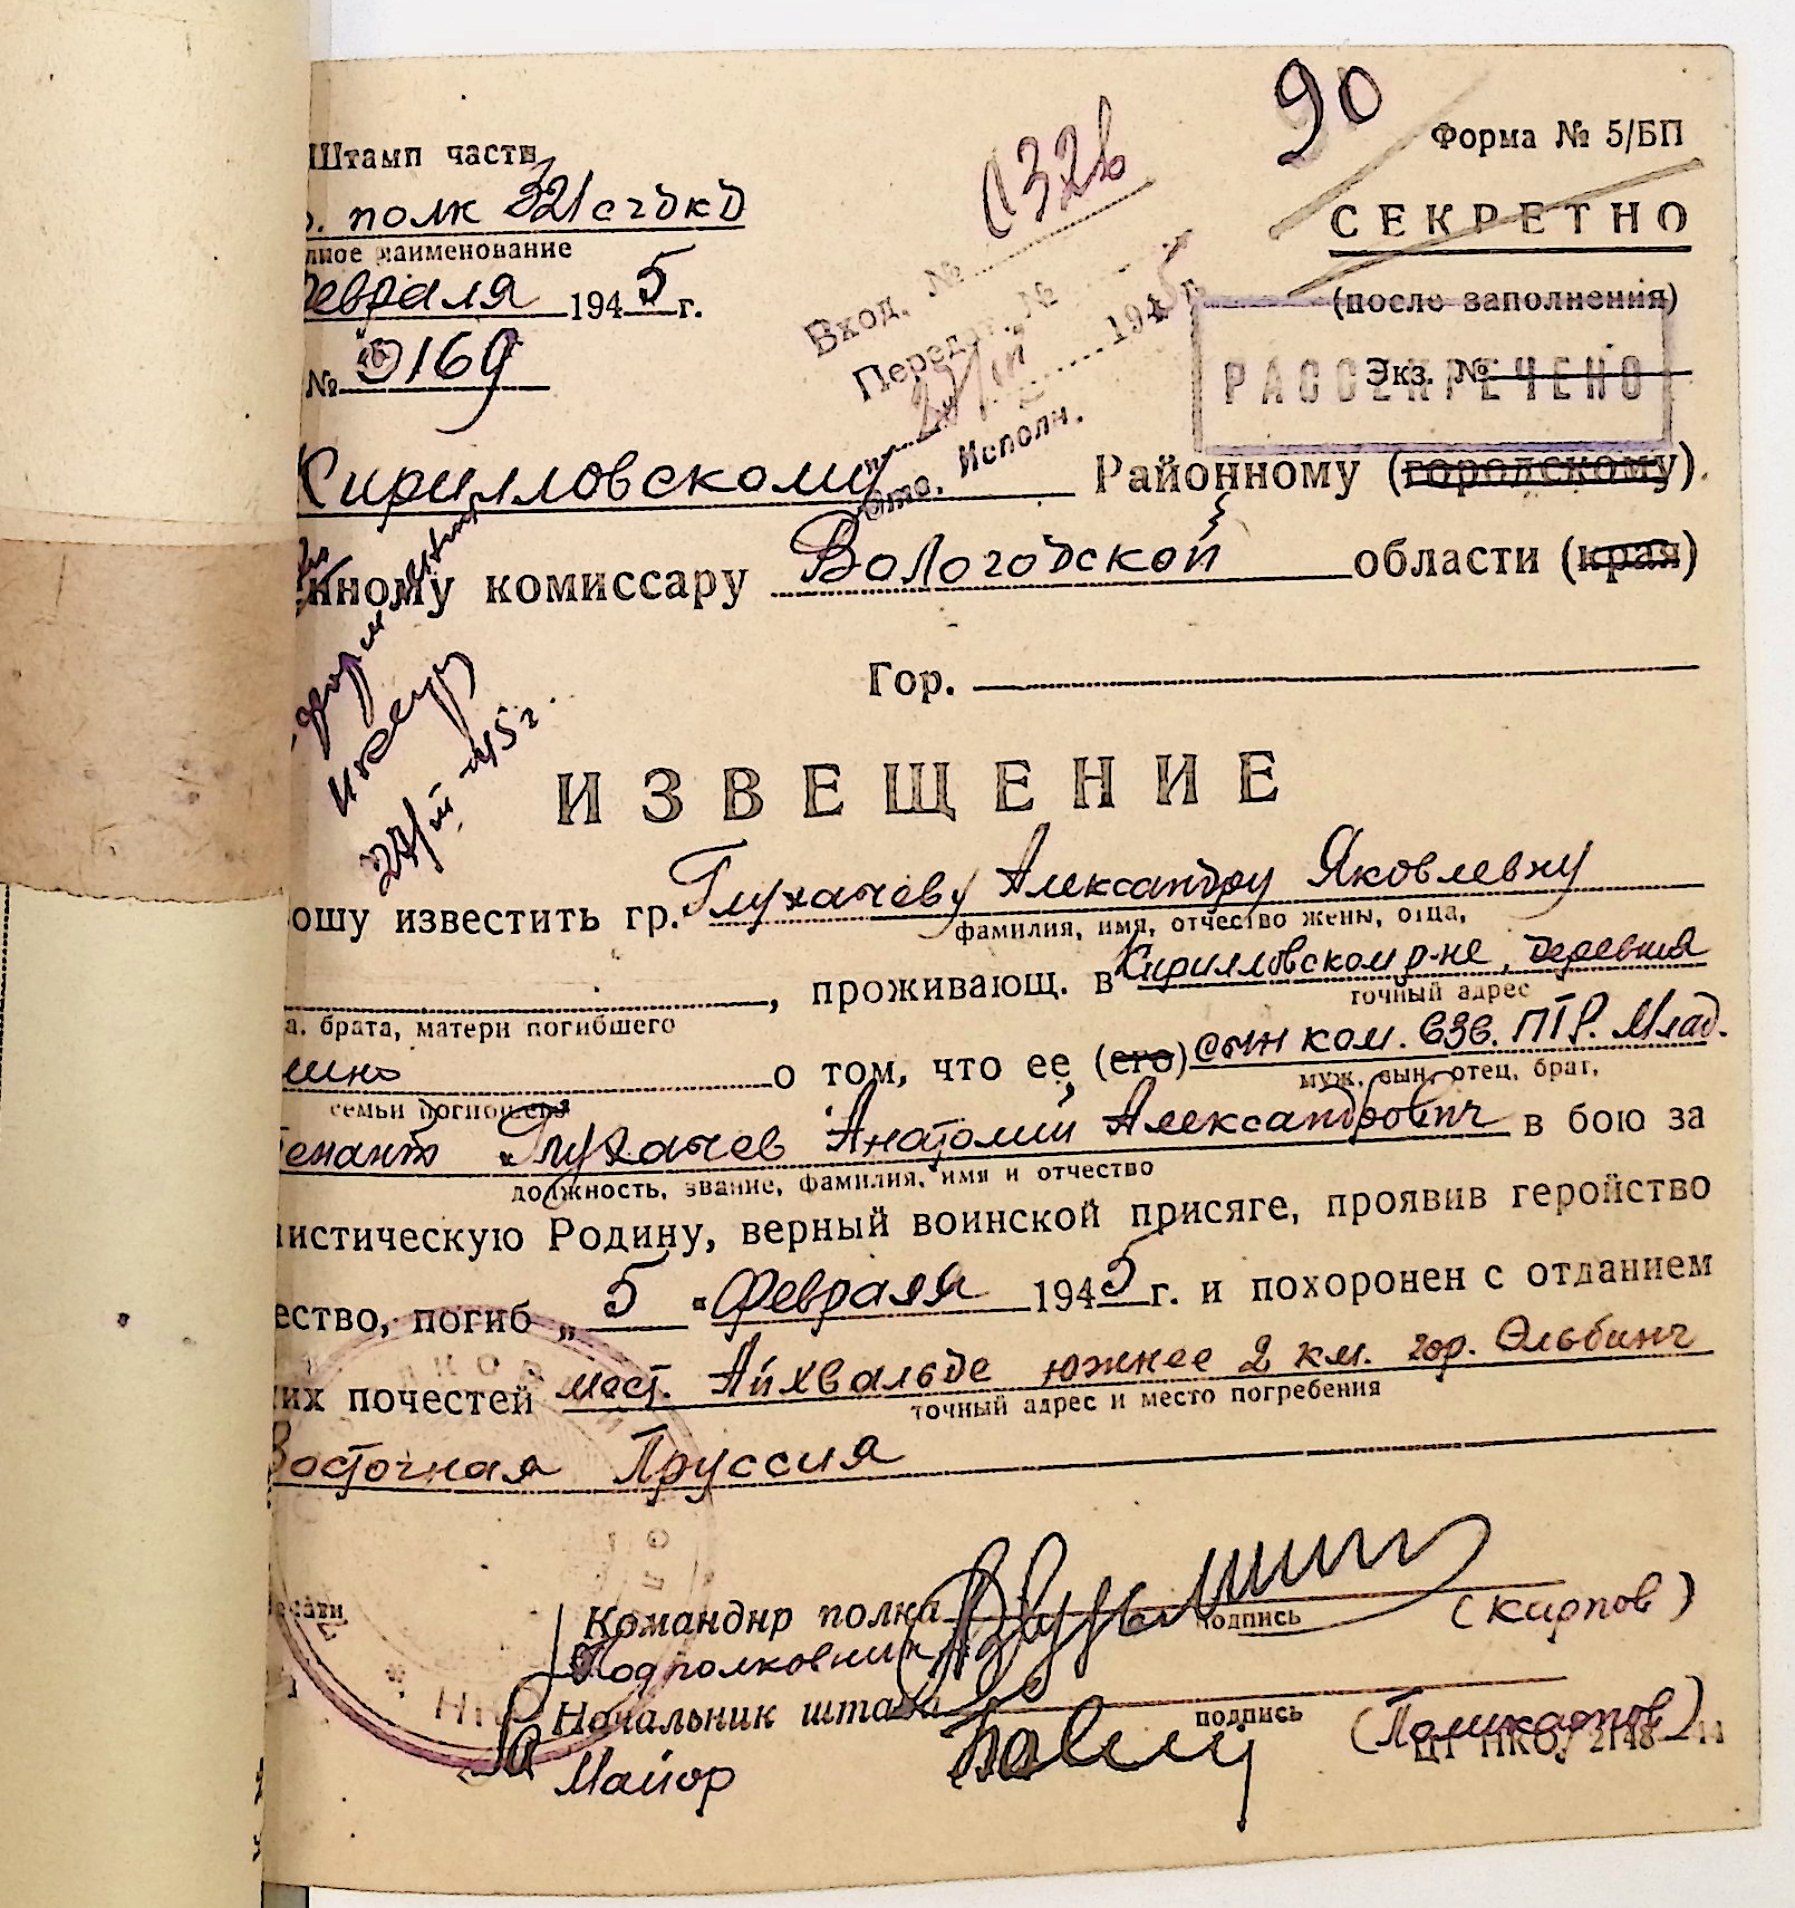 90
Форма № 5/БП
0326
Штамп части
СЕКРЕТНО
полк 321 сгдкд
лное наименование
(после заполнения)
Февраля 1945 г.
Вход. №
Передат. №
1945 г.
Отв. Исполн.
РАССЕКРЕЧЕНО
Экз. №
№ 0169
Кирилловскому Районному (городскому)
енному комиссару Вологодской области (края)
Гор.
27/III-45г.
ИЗВЕЩЕНИЕ
ошу известить гр. Глухачеву Александру Яковлевну
фамилия, имя, отчество жены, отца,
, проживающ. в Кирилловском р-не, деревня
а, брата, матери погибшего
точный адрес
шино о том, что ее, (его) сын ком. взв. ПТР. Млад.
семьи погибшего
муж, сын, отец, брат,
тенант Глухачев Анатолий Александрович в бою за
должность, звание, фамилия, имя и отчество
листическую Родину, верный воинской присяге, проявив геройство
ество, погиб „5" Февраля 1945 г. и похоронен с отданием
их почестей мест. Айхвальде южнее 2 км. гор. Эльбинг
точный адрес и место погребения
Восточная Пруссия
Командир полка
подпись
(Карпов)
Подполковник
Начальник штаба
подпись
(Поликарпов)
Майор
ЦТ НКО 2148—44